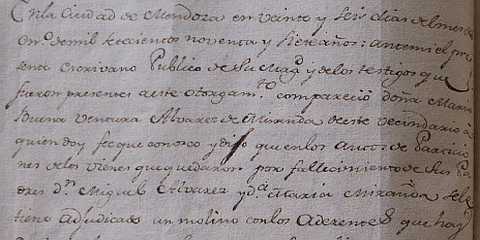 En la Ciudad de Mendoza en veinte y seis dias del mes de
En.º de mil setecientos noventa y siete años: ante mi el pre
sente Escrivano Publico de Su Mag.d y de los testigos que
fueron presentes a este otorgam.to comparecio doña Maria
Buena Ventura Alvares de Miranda de este vecindario à
quien doy fee que conosco y dijo que en los Autos de Particio
nes de los vienes que quedaron por fallecimiento de sus Pa
dres d.n Miguel Alvarez y d.a Maria Miranda se le
tiene adjudicado un molino con los aderentes que hay